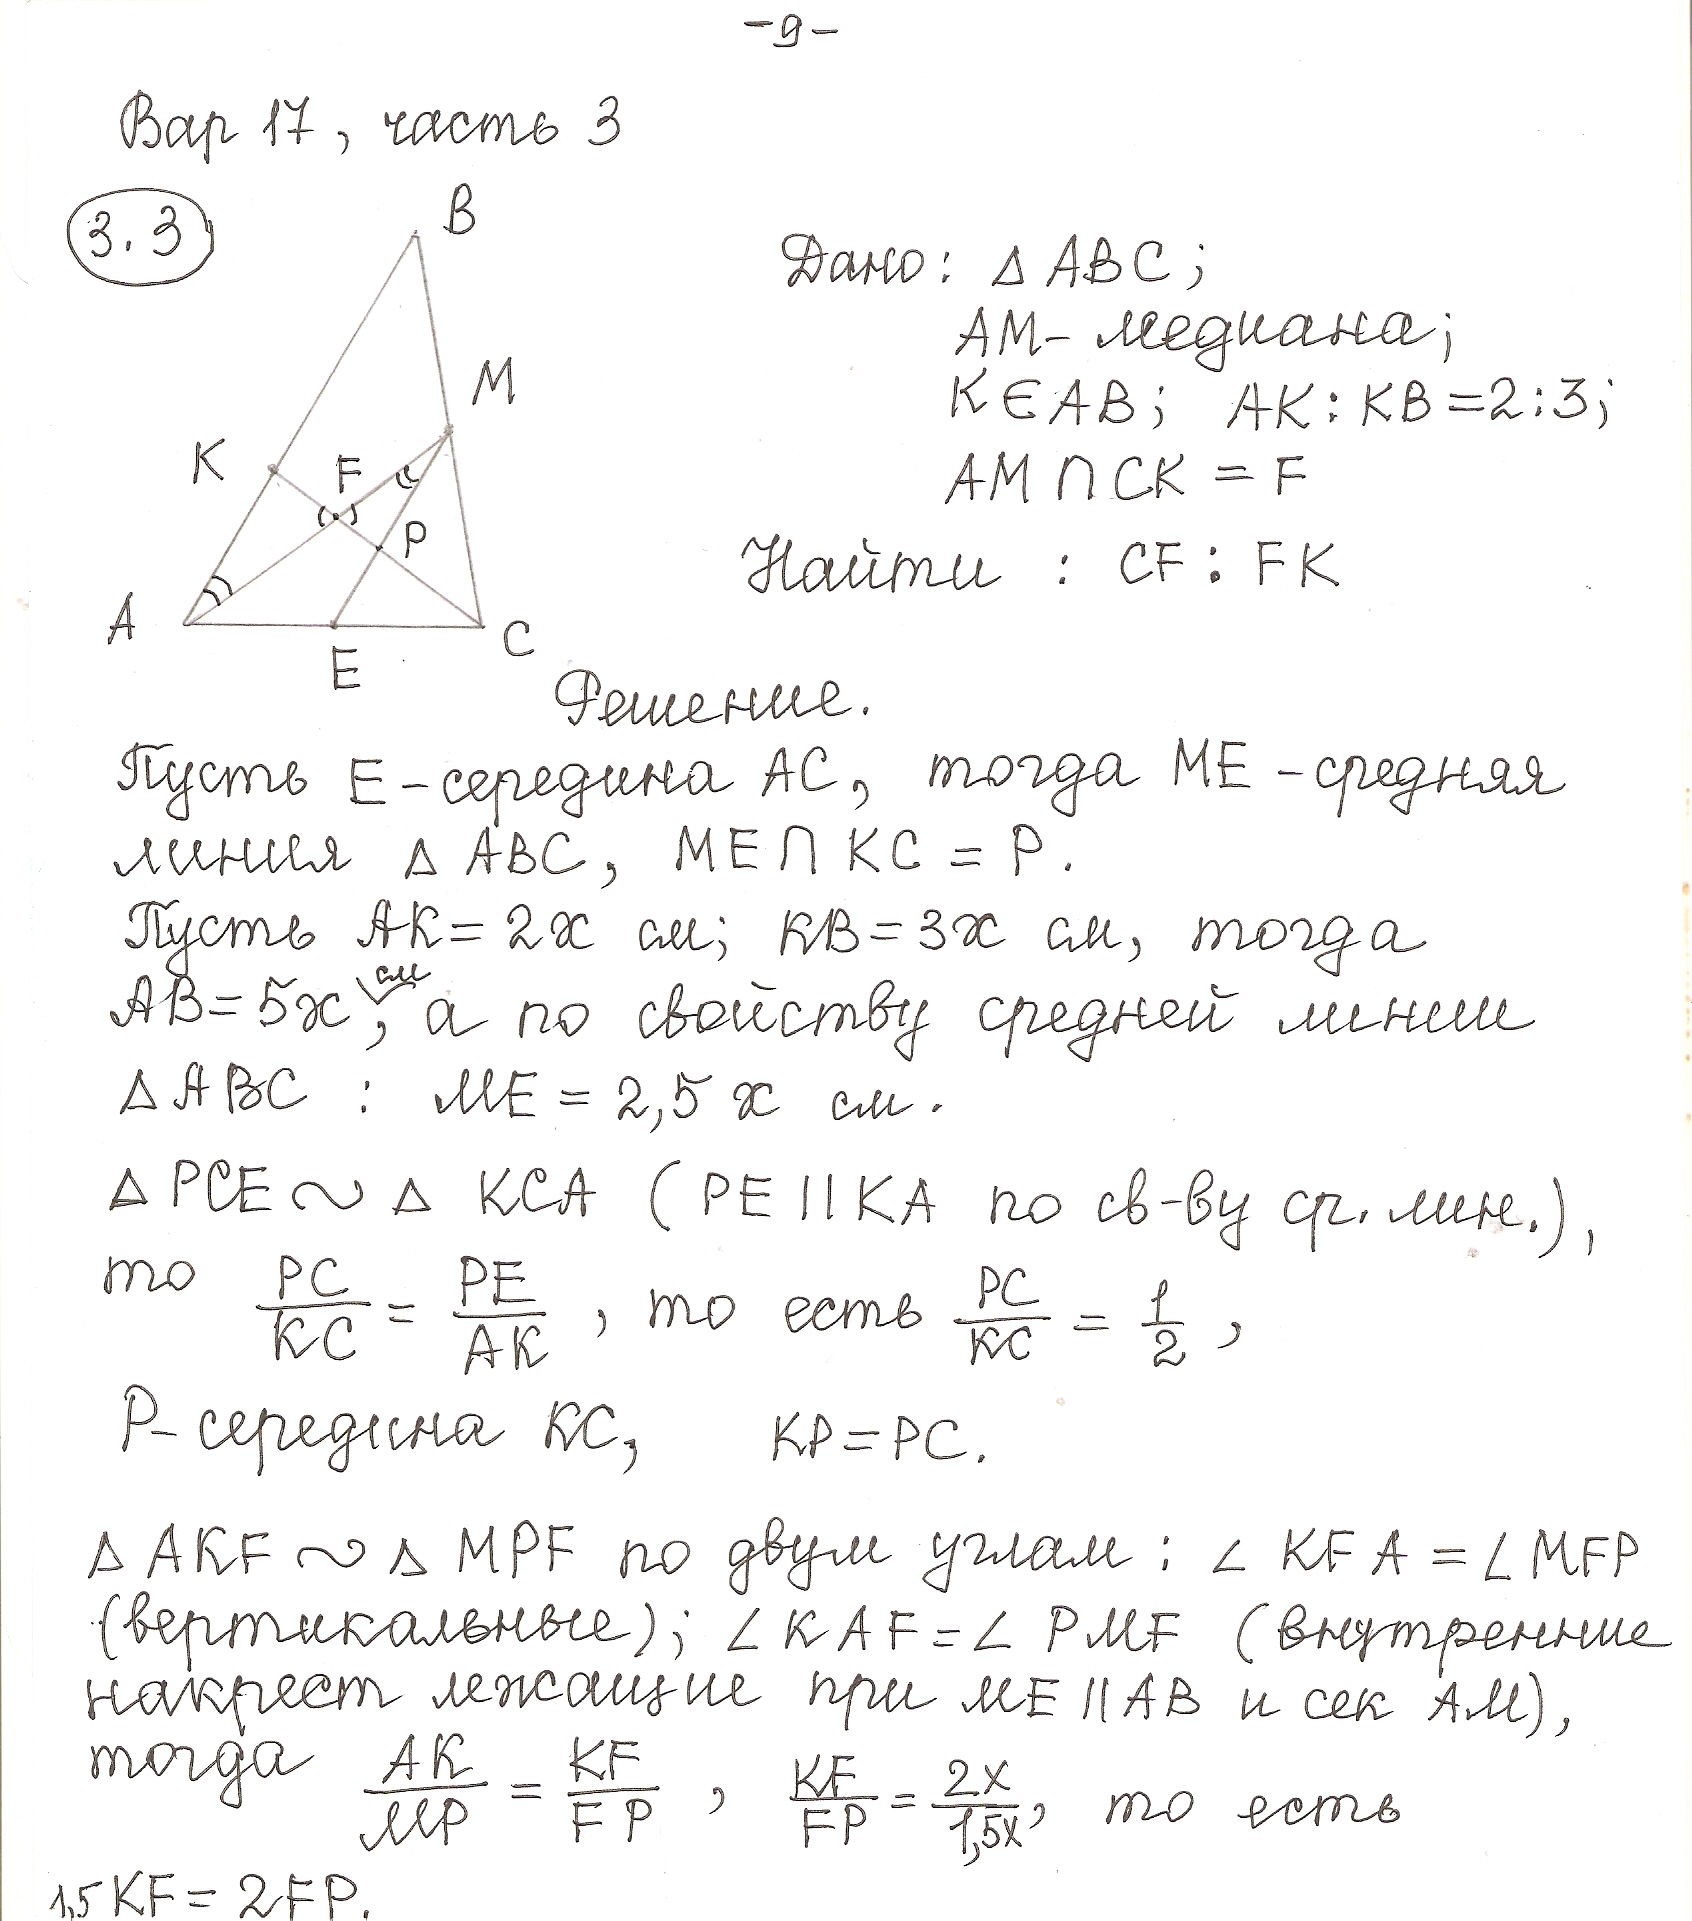 -9-
Вар 17, часть 3
3.3
B
Дано: Δ ABC;
AM- медиана;
M
K ∈ AB; AK:KB=2:3;
K
F
AM ∩ CK = F
P
Найти : CF : FK
A
C
E
Решение.
Пусть E-середина AC, тогда ME-средняя
линия Δ ABC, ME ∩ KC = P.
Пусть AK=2x см; KB=3x см, тогда
AB=5x см, а по свойству средней линии
Δ ABC : ME = 2,5 x см.
Δ PCE ∾ Δ KCA (PE || KA по св-ву ср. лин.),
то PC/KC = PE/AK , то есть PC/KC = 1/2 ,
P-середина KC, KP=PC.
Δ AKF ∾ Δ MPF по двум углам : ∠ KFA = ∠ MFP
(вертикальные); ∠ KAF = ∠ PMF (внутренние
накрест лежащие при ME || AB и сек AM),
тогда AK/MP = KF/FP , KF/FP = 2x/1,5x, то есть
1,5 KF = 2FP.